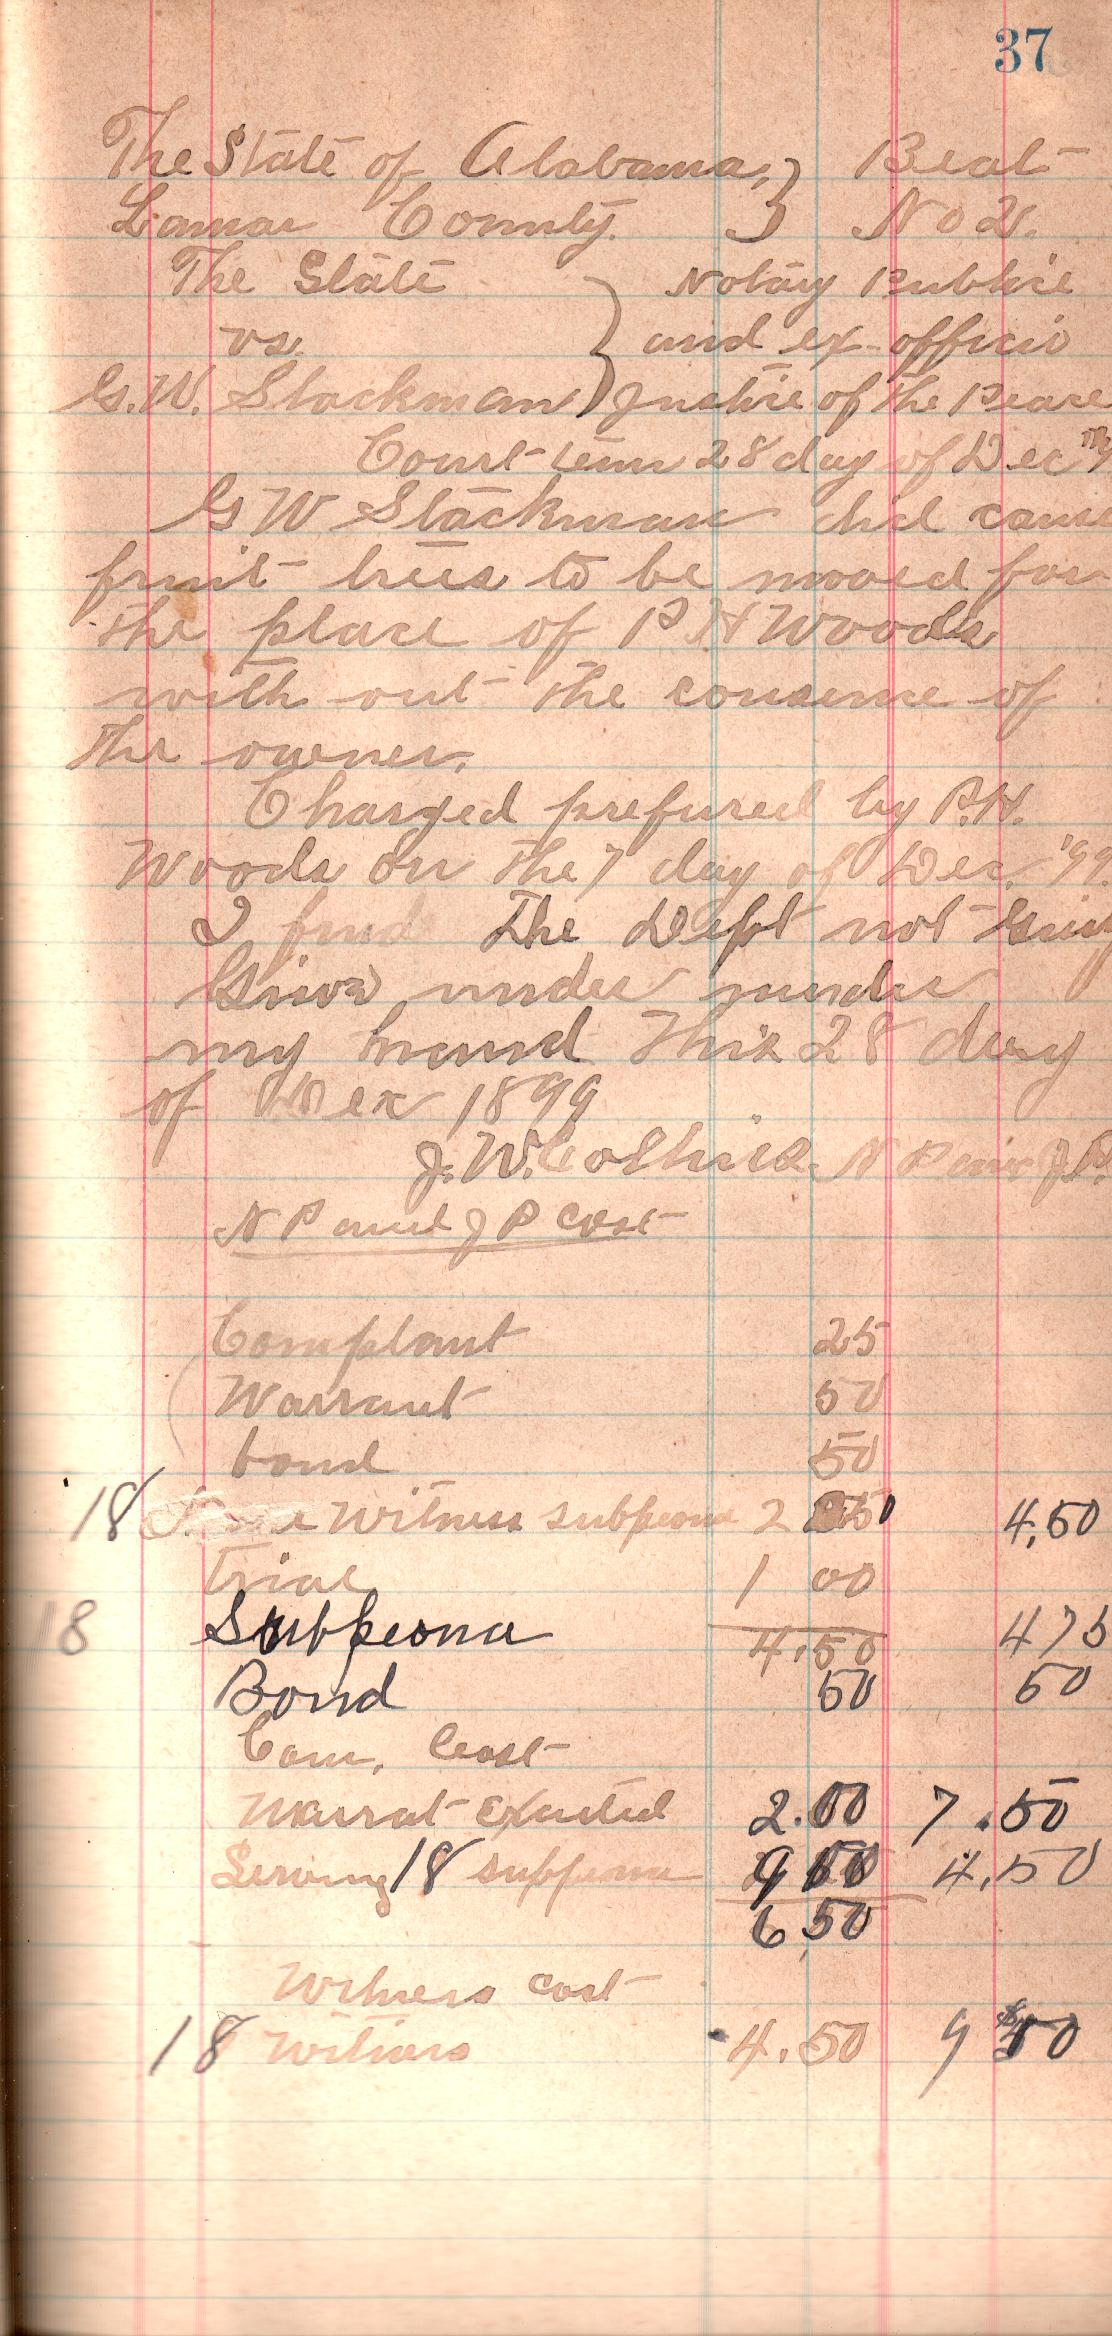 37
The State of Alabama, } Beat
Lamar County. } No 2.
The State } Notary Publice
vs. } and ex-officio
G.W. Stockman } Justice of the Peace
Court term 28 day of Dec
G W Stackman did cause
fruit trees to be moved from
the place of P H Woods
with out the consence of
the owner.
Charged prefured by P.H.
Woods on the 7 day of Dec. '99.
I find The Deft not
under under
my hand This 28 day
of Dec 1899
J. W. N P J.P.
N P and J P Cost
Complant 25
Warrant 50
bond 50
18 Witness subpeona 2 50 4.50
Trial 1 00
18 Subpeona 4.50 475
Bond 50 50
Con. Cost
Warrat Excuted 2.00 7.50
Serving 18 suppeona 4.50
6 50
Witness cost
18 Witness 4.50 9